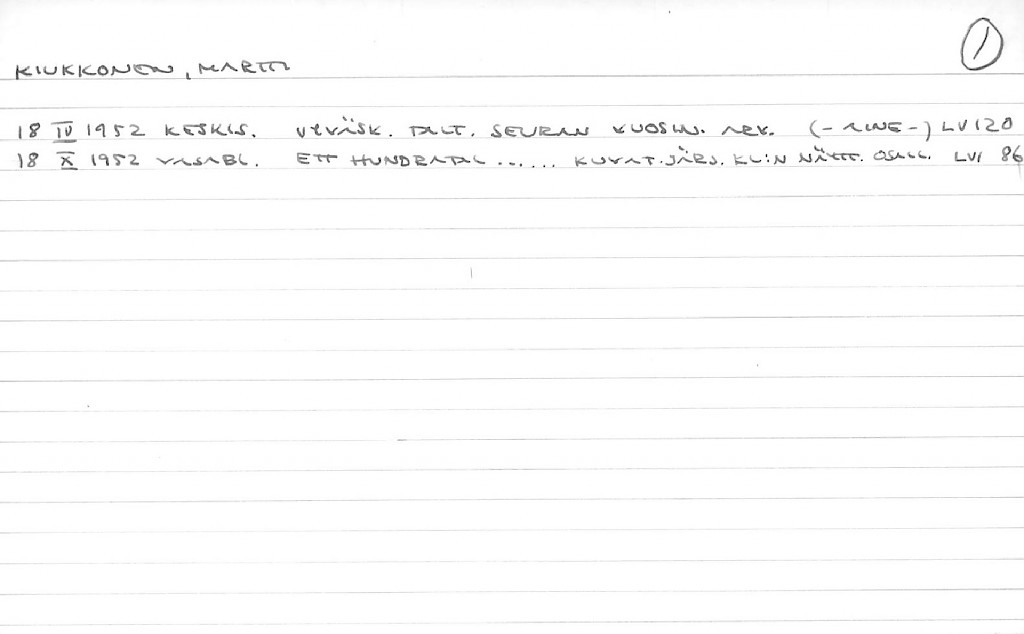 ①
KIUKKONEN, MARTTI
18 IV 1952 KESKIS. JYVÄSK. TAIT. SEURAN VUOSIN. ARV. (-AINE-) LV 120
18 X 1952 VASABL. ETT HUNDRATAL ...... KUVAT.JÄRJ. KL:N NÄYTT. OSALL. LVI 86